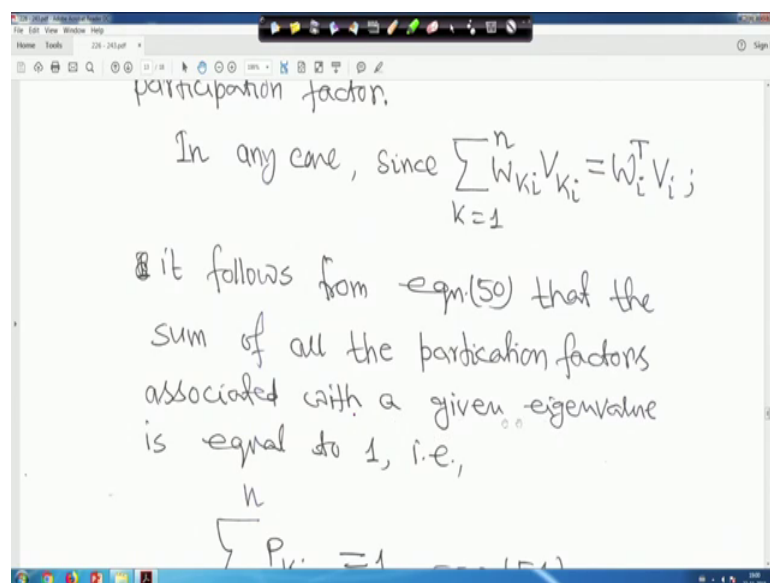 226 - 243.pdf - Adobe Acrobat Reader DC
File Edit View Window Help
Home Tools 226 - 243.pdf × Sign
participation factor.
In any case, since \sum_{K=1}^{n} W_{Ki} V_{Ki} = W_i^T V_i ;
it follows from eqn.(50) that the
sum of all the partication factors
associated with a given eigenvalue
is equal to 1, i.e.,
\sum^{n} P_{Ki} = 1